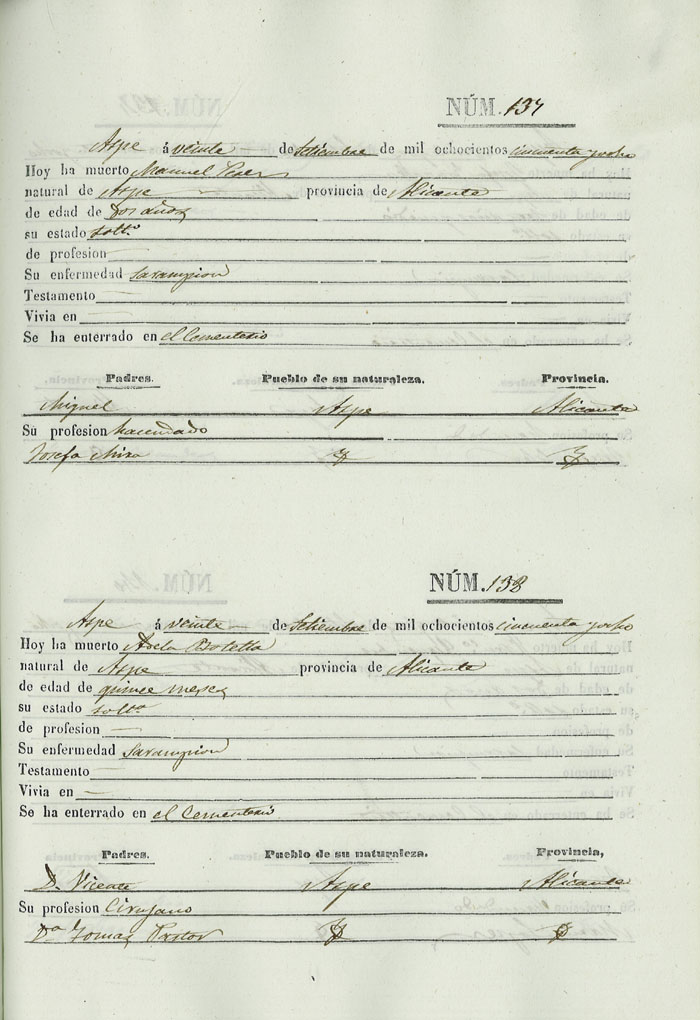 NÚM. 137
Aspe á veinte de Setiembre de mil ochocientos cincuenta y ocho
Hoy ha muerto Manuel
natural de Aspe provincia de Alicante
de edad de Dos años
su estado solt.º
de profesion
Su enfermedad Sarampion
Testamento
Vivia en
Se ha enterrado en el Cementerio
Padres. Pueblo de su naturaleza. Provincia.
Miguel Aspe Alicante
Su profesion hacendado
Josefa Mira
NÚM. 138
Aspe á veinte de Setiembre de mil ochocientos cincuenta y ocho
Hoy ha muerto Adela Botella
natural de Aspe provincia de Alicante
de edad de quince meses
su estado solt.ª
de profesion
Su enfermedad Sarampion
Testamento
Vivia en
Se ha enterrado en el Cementerio
Padres. Pueblo de su naturaleza. Provincia,
D. Vicente Aspe Alicante
Su profesion Cirujano
D.ª Tomasa Pastor